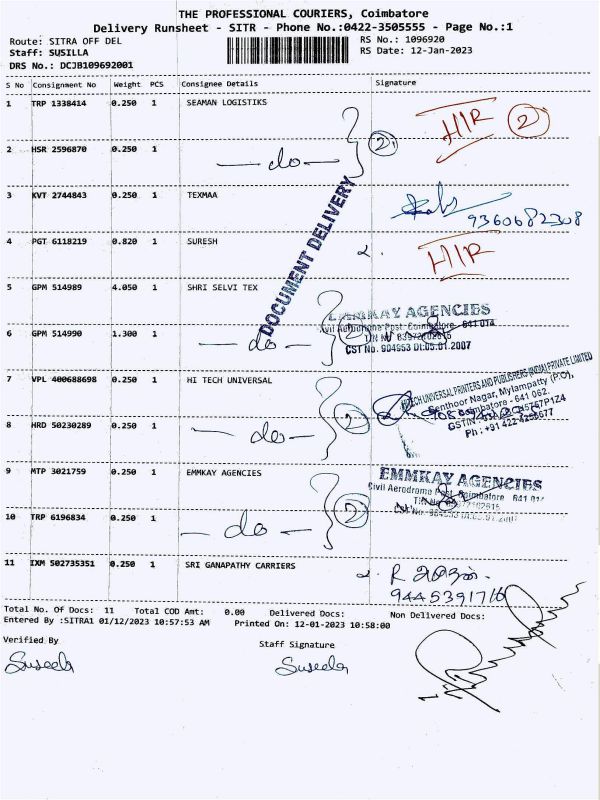 THE PROFESSIONAL COURIERS, Coimbatore
Delivery Runsheet - SITR - Phone No.:0422-3505555 - Page No.:1
Route: SITRA OFF DEL
RS No.: 1096920
Staff: SUSILLA
RS Date: 12-Jan-2023
DRS No.: DCJB109692001
S No Consignment No Weight PCS Consignee Details Signature
1 TRP 1338414 0.250 1 SEAMAN LOGISTIKS
HIR 2
2 HSR 2596870 0.250 1 -do- 2
3 KVT 2744843 0.250 1 TEXMAA
9360682308
DOCUMENT DELIVERY
4 PGT 6118219 0.820 1 SURESH
HIR
5 GPM 514989 4.050 1 SHRI SELVI TEX
EMMKAY AGENCIES
Civil Aerodrome Post, Coimbatore - 641 014
6 GPM 514990 1.300 1 -do- 2
CST No. 904953 Dt.05.01.2007
7 VPL 400688698 0.250 1 HI TECH UNIVERSAL
HITECH UNIVERSAL PRINTERS AND PUBLISHERS (INDIA) PRIVATE LIMITED
Senthoor Nagar, Mylampatty (P.O),
Coimbatore - 641 062.
8 HRD 50230289 0.250 1 -do- 2
9 MTP 3021759 0.250 1 EMMKAY AGENCIES
EMMKAY AGENCIES
Civil Aerodrome Post, Coimbatore 641 014
10 TRP 6196834 0.250 1 -do- 2
11 IXM 502735351 0.250 1 SRI GANAPATHY CARRIERS
9445391716
Total No. Of Docs: 11 Total COD Amt: 0.00 Delivered Docs: Non Delivered Docs:
Entered By :SITRA1 01/12/2023 10:57:53 AM Printed On: 12-01-2023 10:58:00
Verified By
Staff Signature
Suseela
Suseela